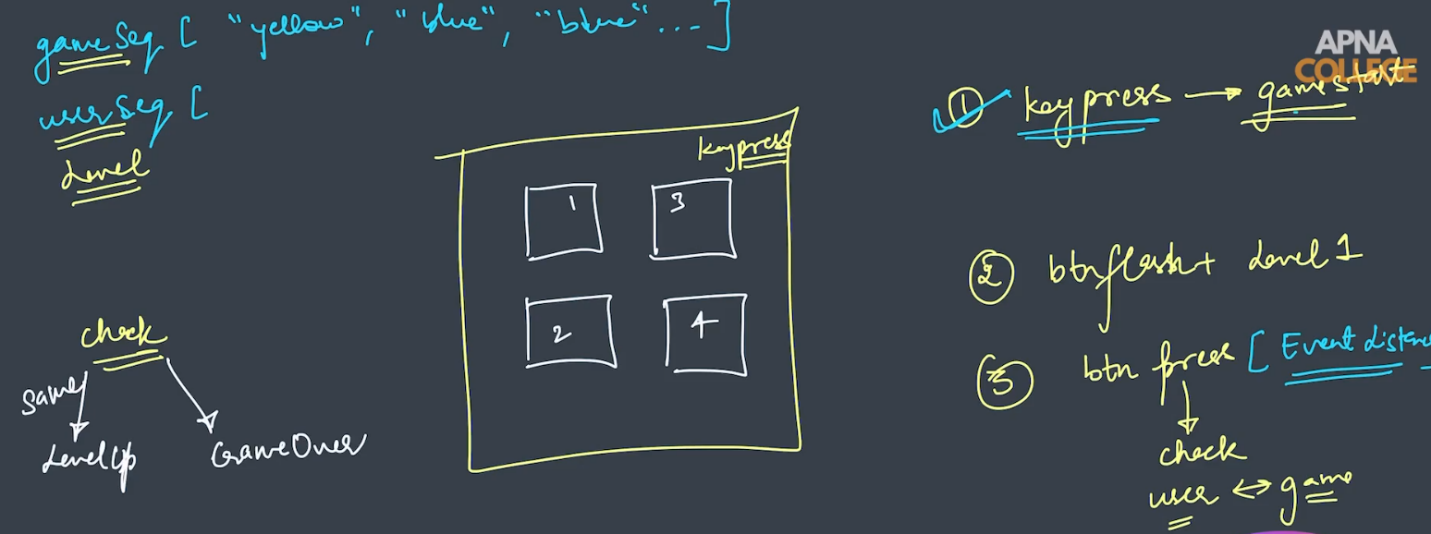 gameSeq [ "yellow", "blue", "blue"... ]
userSeq [
Level
check
same
LevelUp
GameOver
keypress
1
3
2
4
APNA
COLLEGE
① keypress → gamestart
② btnflash + Level 1
③ btn press [ Event
check
user ↔ game